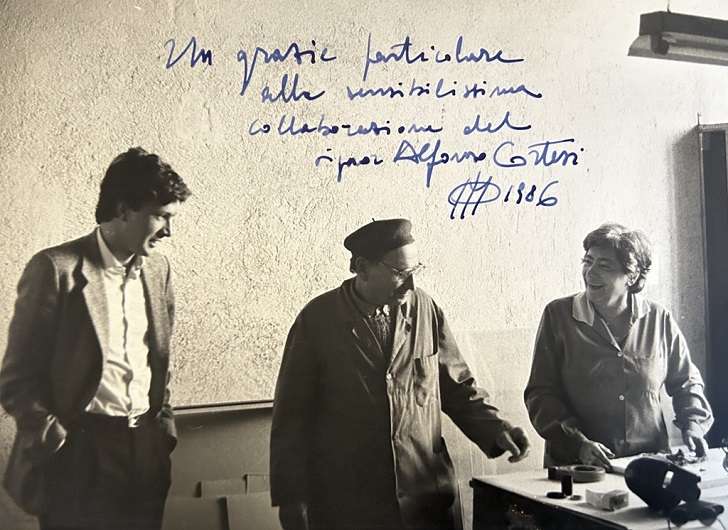 Un grazie particolare
alla sensibilissima
collaborazione del
signor Alfonso Cortesi
1986